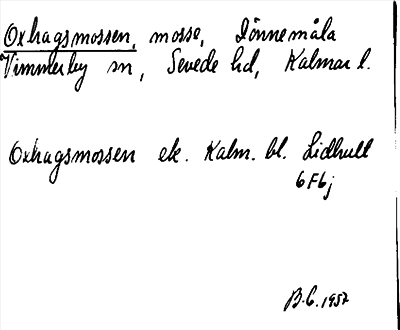 Oxhagsmossen, mosse, Tönnemåla
Vimmerby sn, Sevede hd, Kalmar l.
Oxhagsmossen ek. Kalm. bl. Lidhult
6F6j
B.C. 1957